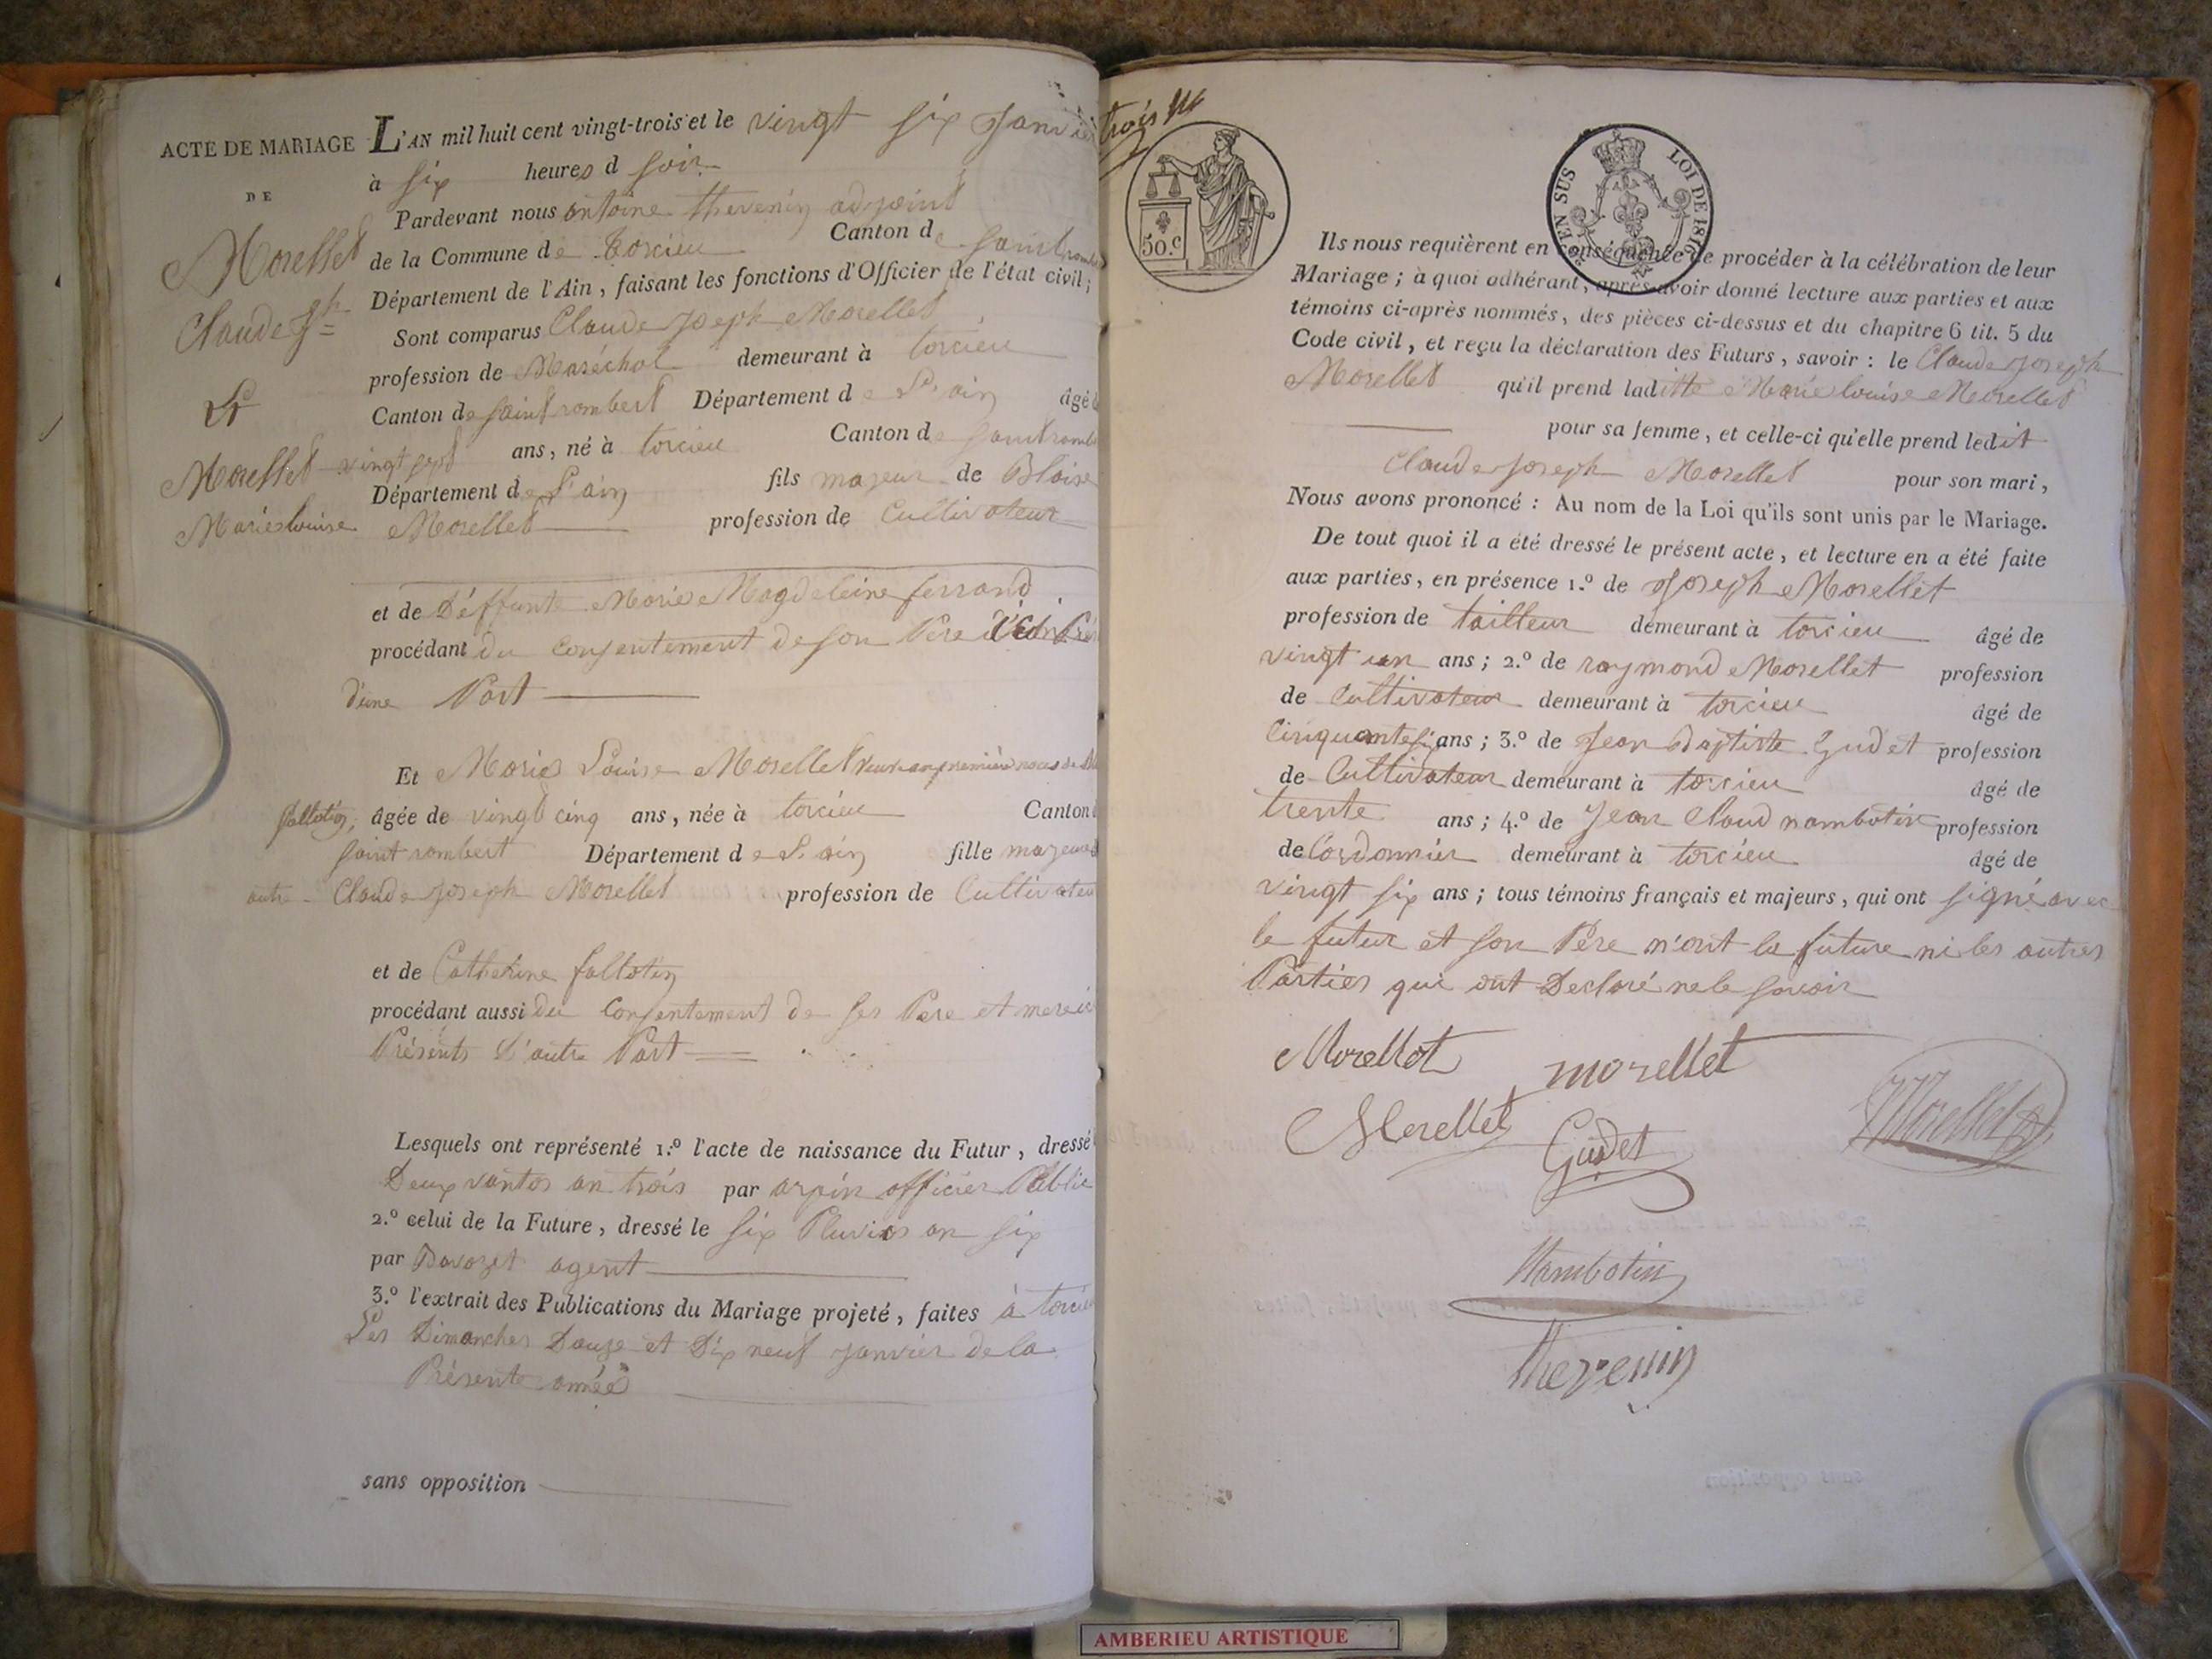 ACTE DE MARIAGE
DE
Morellet
Claude Jh
Et
Morellet
Marie louise
L'AN mil huit cent vingt-trois et le vingt six Janvier
à six heures d soir
Pardevant nous antoine thevenin adjoint
de la Commune de torcieu Canton de saint rombert
Département de l'Ain, faisant les fonctions d'Officier de l'état civil;
Sont comparus Claude Joseph Morellet
profession de Maréchal demeurant à torcieu
Canton de saint rombert Département de L'ain âgé d
vingt sept ans, né à torcieu Canton de saint rombe
Département de L'ain fils majeur de Blaise
Morellet profession de Cultivateur
et de Déffunte Marie Magdeleine ferrand
procédant du consentement de son Pere
d'une Part
Et Marie Louise Morellet veuve en première noces de
fallotin, âgée de vingt cinq ans, née à torcieu Canton d
saint rombert Département de L'ain fille majeure d
autre Claude Joseph Morellet profession de Cultivateu
et de Catherine fallotin
procédant aussi du consentement de ses Pere et mere ic
Présents D'autre Part
Lesquels ont représenté 1.º l'acte de naissance du Futur, dressé
Deux vantos an trois par arpin officier Public
2.º celui de la Future, dressé le six Pluvios an six
par agent
3.º l'extrait des Publications du Mariage projeté, faites à torcieu
Les Dimanches Douze et Dix neuf janvier de la
Présente année
sans opposition
trois
50.c
EN SUS
LOI DE 1816
Ils nous requièrent en conséquence de procéder à la célébration de leur
Mariage; à quoi adhérant, après avoir donné lecture aux parties et aux
témoins ci-après nommés, des pièces ci-dessus et du chapitre 6 tit. 5 du
Code civil, et reçu la déclaration des Futurs, savoir: le Claude Joseph
Morellet qu'il prend laditte Marie louise Morellet
pour sa femme, et celle-ci qu'elle prend ledit
Claude Joseph Morellet pour son mari,
Nous avons prononcé: Au nom de la Loi qu'ils sont unis par le Mariage.
De tout quoi il a été dressé le présent acte, et lecture en a été faite
aux parties, en présence 1.º de Joseph Morellet
profession de tailleur demeurant à torcieu âgé de
vingt un ans; 2.º de raymond Morellet profession
de Cultivateur demeurant à torcieu âgé de
Cinquante six ans; 3.º de Jean Baptiste Gudet profession
de Cultivateur demeurant à torcieu âgé de
trente ans; 4.º de Jean Claud nambotin profession
de Cordonnier demeurant à torcieu âgé de
vingt six ans; tous témoins français et majeurs, qui ont signé avec
le futur et son Père n'ont la future ni les autres
Parties qui ont Declaré ne le savoir
Morellet morellet
Morellet Gudet Morellet
Nambotin
thevenin
AMBERIEU ARTISTIQUE